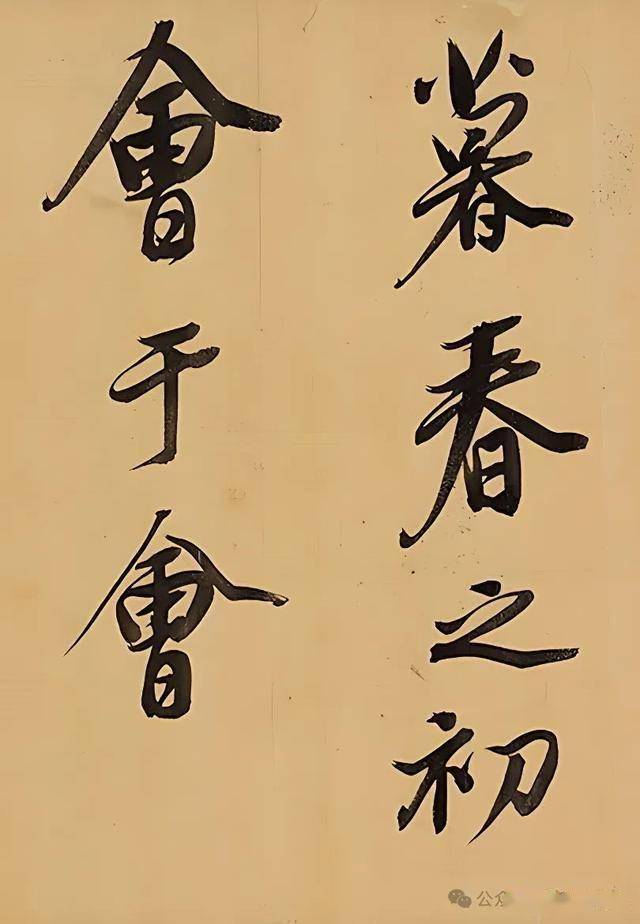 暮春之初
會于會
公众